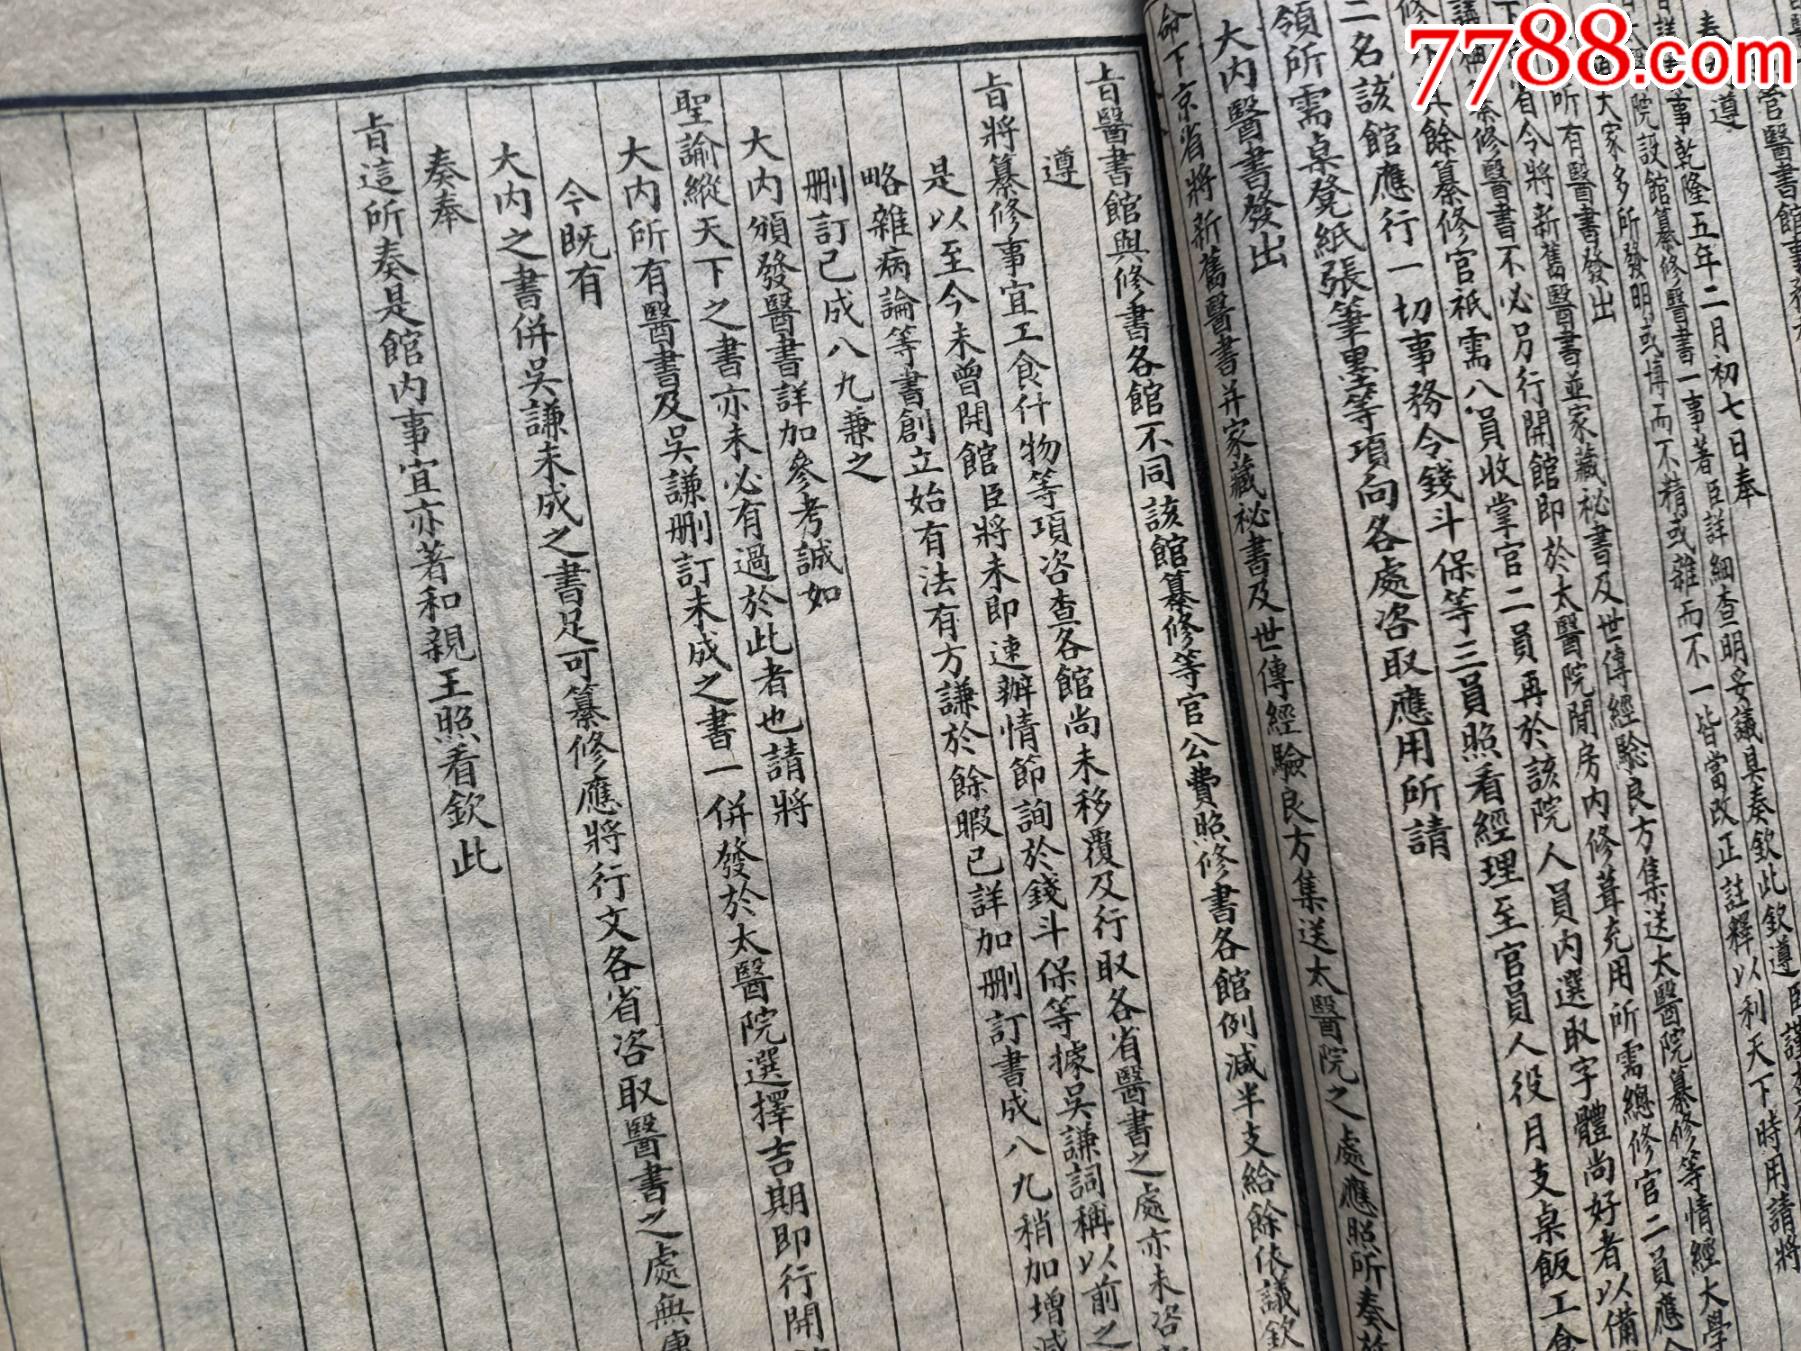 7788.com
管醫書館事務
奏遵
事乾隆五年二月初七日奉
院設館纂修醫書一事著臣詳細查明妥議具奏欽此欽遵
大家多所發明或博而不精或雜而不一皆當改正註釋以利天下時用請將
所有醫書發出
省令將新舊醫書並家藏祕書及世傳經驗良方集送太醫院纂修等情經大學
纂修醫書不必另行開館即於太醫院閒房內修葺充用所需總修官二員應
其餘纂修官祇需八員收掌官二員再於該院人員內選取字體尚好者以備
二名該館應行一切事務令錢斗保等三員照看經理至官員人役月支桌飯工食
領所需桌凳紙張筆墨等項向各處咨取應用所請
大內醫書發出
命下京省將新舊醫書并家藏祕書及世傳經驗良方集送太醫院之處應照所奏
旨醫書館與修書各館不同該館纂修等官公費照修書各館例減半支給餘依議欽
遵
旨將纂修事宜工食什物等項咨查各館尚未移覆及行取各省醫書之處亦未咨
是以至今未曾開館臣將未即速辦情節詢於錢斗保等據吳謙詞稱以前之
略雜病論等書創立始有法有方謙於餘暇已詳加刪訂書成八九稍加增減
刪訂已成八九兼之
大內頒發醫書詳加參考誠如
聖諭縱天下之書亦未必有過於此者也請將
大內所有醫書及吳謙刪訂未成之書一併發於太醫院選擇吉期即行開
今既有
大內之書併吳謙未成之書足可纂修應將行文各省咨取醫書之處無庸
奏奉
旨這所奏是館內事宜亦著和親王照看欽此